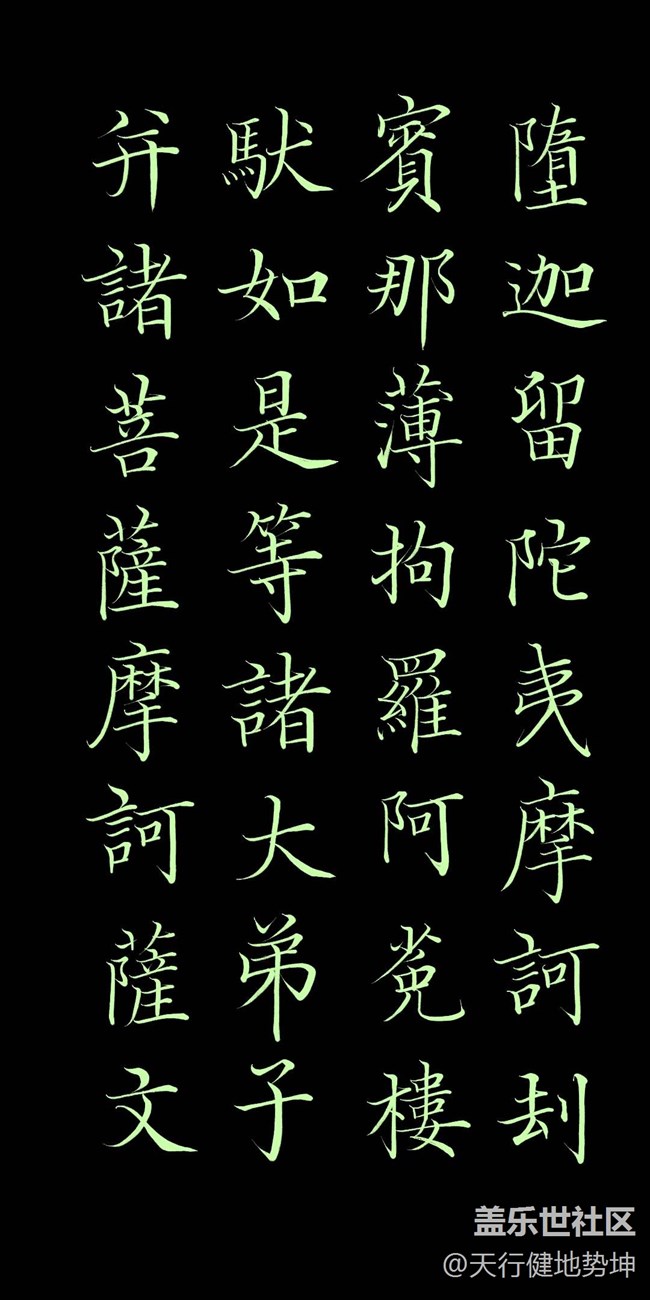 墮迦留陀夷摩訶刦
賓那薄拘羅阿㝹樓
馱如是等諸大弟子
并諸菩薩摩訶薩文
盖乐世社区
@天行健地势坤